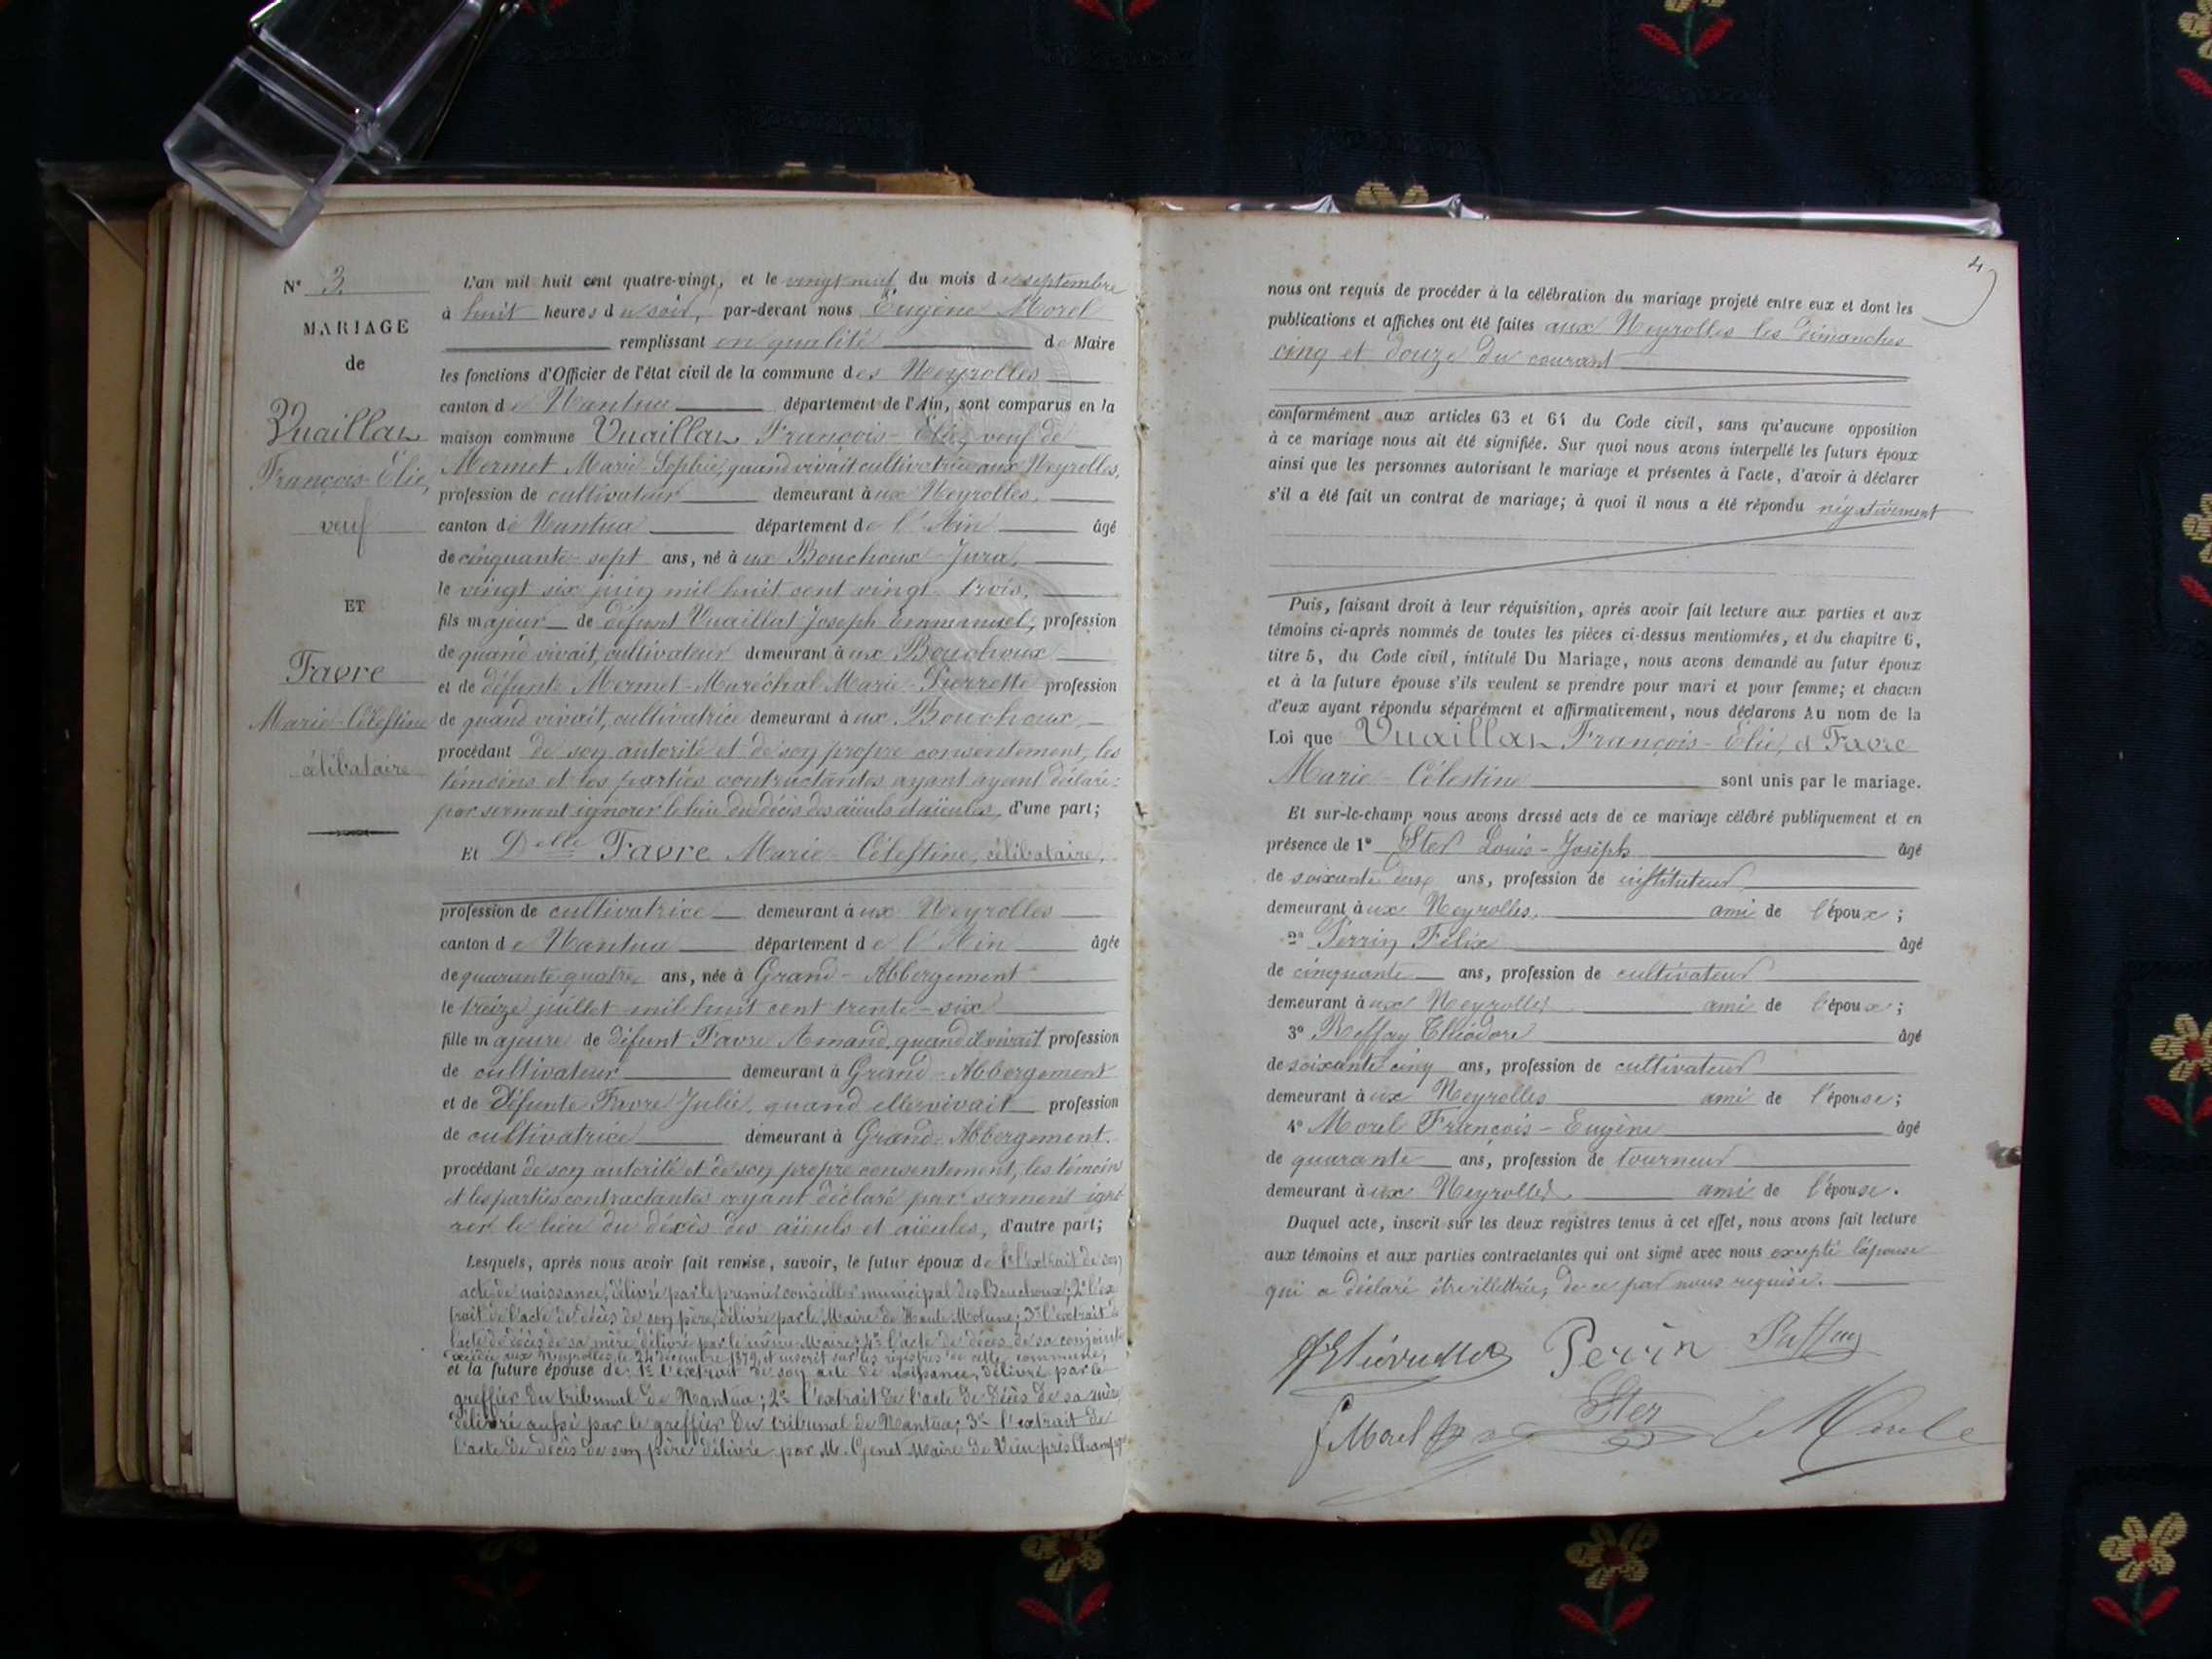 N° 3.
MARIAGE
de
Vuaillat
François-Élie,
veuf
ET
Favre
Marie-Célestine
célibataire
L'an mil huit cent quatre-vingt, et le vingt neuf du mois de septembre
à huit heures du soir, par-devant nous Eugène Morel
remplissant en qualité de Maire
les fonctions d'Officier de l'état civil de la commune des Neyrolles
canton de Nantua département de l'Ain, sont comparus en la
maison commune Vuaillat François-Élie, veuf de
Mermet Marie-Sophie, quand vivait cultivatrice aux Neyrolles,
profession de cultivateur demeurant à ux Neyrolles,
canton de Nantua département de l'Ain âgé
de cinquante-sept ans, né à ux Bouchoux-Jura,
le vingt six juin mil huit cent vingt-trois,
fils majeur de défunt Vuaillat Joseph Emmanuel, profession
de quand vivait, cultivateur demeurant à ux Bouchoux
et de défunte Mermet-Maréchal Marie-Pierrette profession
de quand vivait, cultivatrice demeurant à ux Bouchoux,
procédant de son autorité et de son propre consentement, les
témoins et les parties contractantes ayant ayant déclaré
par serment ignorer le lieu du décès des aïeuls et aïeules, d'une part;
Et Delle Favre Marie-Célestine, célibataire,
profession de cultivatrice demeurant à ux Neyrolles
canton de Nantua département de l'Ain âgée
de quarante quatre ans, née à Grand-Abbergement
le treize juillet mil huit cent trente-six
fille majeure de défunt Favre Amand, quand il vivait profession
de cultivateur demeurant à Grand-Abbergement
et de défunte Favre Julie, quand elle vivait profession
de cultivatrice demeurant à Grand-Abbergement.
procédant de son autorité et de son propre consentement, les témoins
et les parties contractantes ayant déclaré par serment igno
rer le lieu du décès des aïeuls et aïeules, d'autre part;
Lesquels, après nous avoir fait remise, savoir, le futur époux de 1° l'extrait de son
acte de naissance, délivré par le premier conseiller municipal des Bouchoux; 2° l'ex
trait de l'acte de décès de son père, délivré par le Maire de Haute Molune; 3° l'extrait de
l'acte de décès de sa mère délivré par le même Maire; 4° l'acte de décès de sa conjointe
décédée aux Neyrolles, le 24 décembre 1879, et inscrit sur les registres de cette commune,
et la future épouse de: 1° l'extrait de son acte de naissance, délivré par le
greffier du tribunal de Nantua; 2° l'extrait de l'acte de décès de sa mère
délivré aussi par le greffier du tribunal de Nantua; 3° l'extrait de
l'acte de décès de son père délivré par M. Genet Maire de Vieu près Champ
4
nous ont requis de procéder à la célébration du mariage projeté entre eux et dont les
publications et affiches ont été faites aux Neyrolles les dimanches
cinq et douze du courant
conformément aux articles 63 et 64 du Code civil, sans qu'aucune opposition
à ce mariage nous ait été signifiée. Sur quoi nous avons interpellé les futurs époux
ainsi que les personnes autorisant le mariage et présentes à l'acte, d'avoir à déclarer
s'il a été fait un contrat de mariage; à quoi il nous a été répondu négativement
Puis, faisant droit à leur réquisition, après avoir fait lecture aux parties et aux
témoins ci-après nommés de toutes les pièces ci-dessus mentionnées, et du chapitre 6,
titre 5, du Code civil, intitulé Du Mariage, nous avons demandé au futur époux
et à la future épouse s'ils veulent se prendre pour mari et pour femme; et chacun
d'eux ayant répondu séparément et affirmativement, nous déclarons Au nom de la
Loi que Vuaillat François-Élie, et Favre
Marie-Célestine sont unis par le mariage.
Et sur-le-champ nous avons dressé acte de ce mariage célébré publiquement et en
présence de 1° Ster Louis-Joseph âgé
de soixante deux ans, profession de instituteur
demeurant à ux Neyrolles, ami de l'époux;
2° Perrin Félix âgé
de cinquante ans, profession de cultivateur
demeurant à ux Neyrolles ami de l'époux;
3° Reffay Théodore âgé
de soixante cinq ans, profession de cultivateur
demeurant à ux Neyrolles ami de l'épouse;
4° Morel François-Eugène âgé
de quarante ans, profession de tourneur
demeurant à ux Neyrolles, ami de l'épouse.
Duquel acte, inscrit sur les deux registres tenus à cet effet, nous avons fait lecture
aux témoins et aux parties contractantes qui ont signé avec nous excepté l'épouse
qui a déclaré être illettrée, de ce par nous requise.
Perrin
Morel
Ster